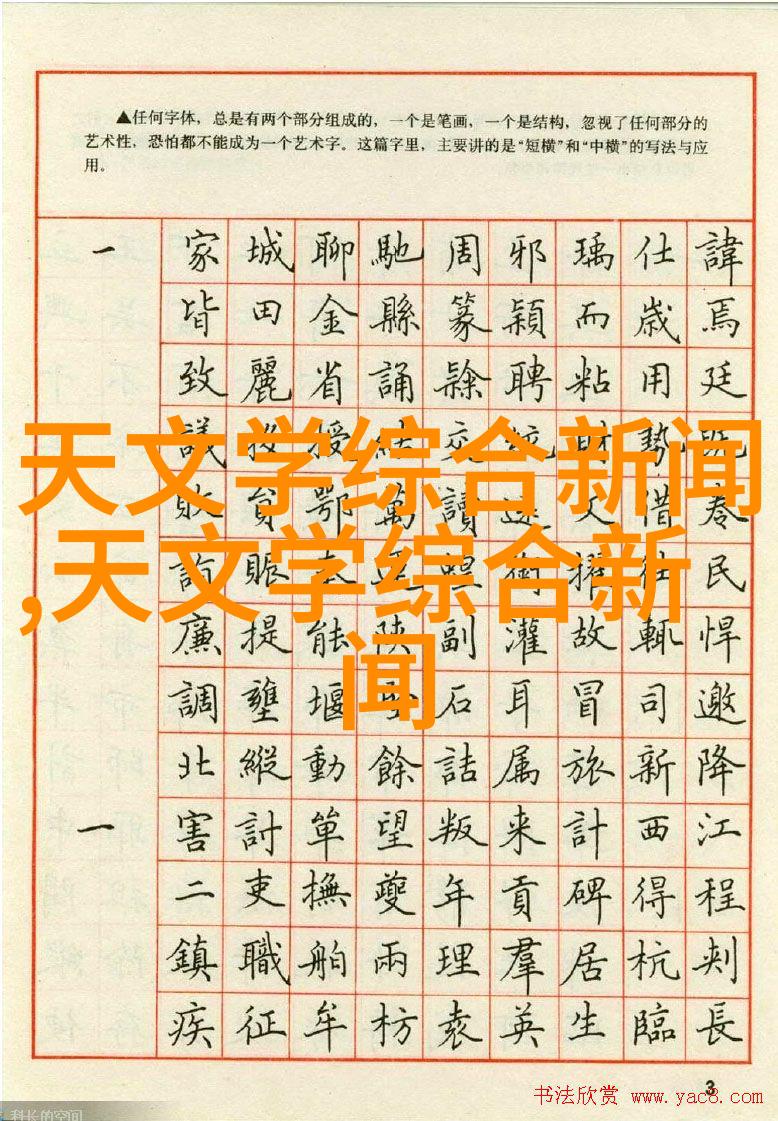 ▲任何字体，总是有两个部分组成的，一个是笔画，一个是结构，忽视了任何部分的
艺术性，恐怕都不能成为一个艺术字。这篇字里，主要讲的是“短横”和“中横”的写法与应
用。
一 家城聊馳周邪瑀仕諱
皆田金縣篆潁而歲焉
致麗省誦隸聘粘用廷
議授交財勢既
天文学综合新闻
敗貧鄂萬讀文借春
,天文学综合新
賑民
廉提能陝副灌故輒悍
闻
調壅堰石耳冒司邀
北縱動餘詰属旅新降
一 害討單望叛来計西江
二吏撫夔年貢碑得程
鎮職舶兩理羣居杭刺
疾征牟枋袁英生臨長
3
书法欣赏 www.yac8.com
科长的空间